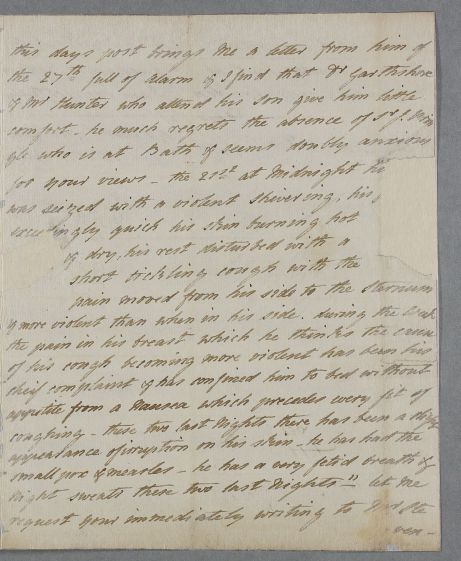 this days post brings me a letter from him of
the 27th full of alarm & I find that Dr Garthshore
& Mr Hunter who attend his son give him little
comfort. he much regrets the absence of Sr J. Prin
gle who is at Bath & seems doubly anxious
for your views - the 21st at Midnight he
was seized with a violent shivering, his
exceedingly quick his skin burning hot
& dry, his rest disturbed with a
short tickling cough with the
pain moved from his side to the sternum
& more violent than when in his side. during the Week
the pain in his breast which he thinks the cause
of his cough becoming more violent has been his
chief complaint & has confined him to bed without
appetite from a Nausea which precedes every fit of
coughing - these two last Nights there has been a
appearance of irruption on his skin - he has had the
small pox & measles - he has a very fetid breath &
Night sweats these two last Nights" let me
request your immediately writing to Mr Ste
ven-